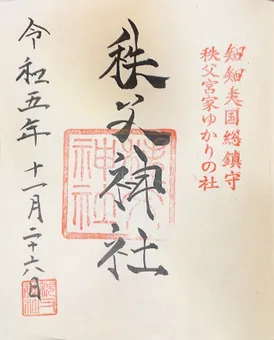 知知夫国総鎮守
秩父宮家ゆかりの社
秩父神社
令和五年十一月二十六日